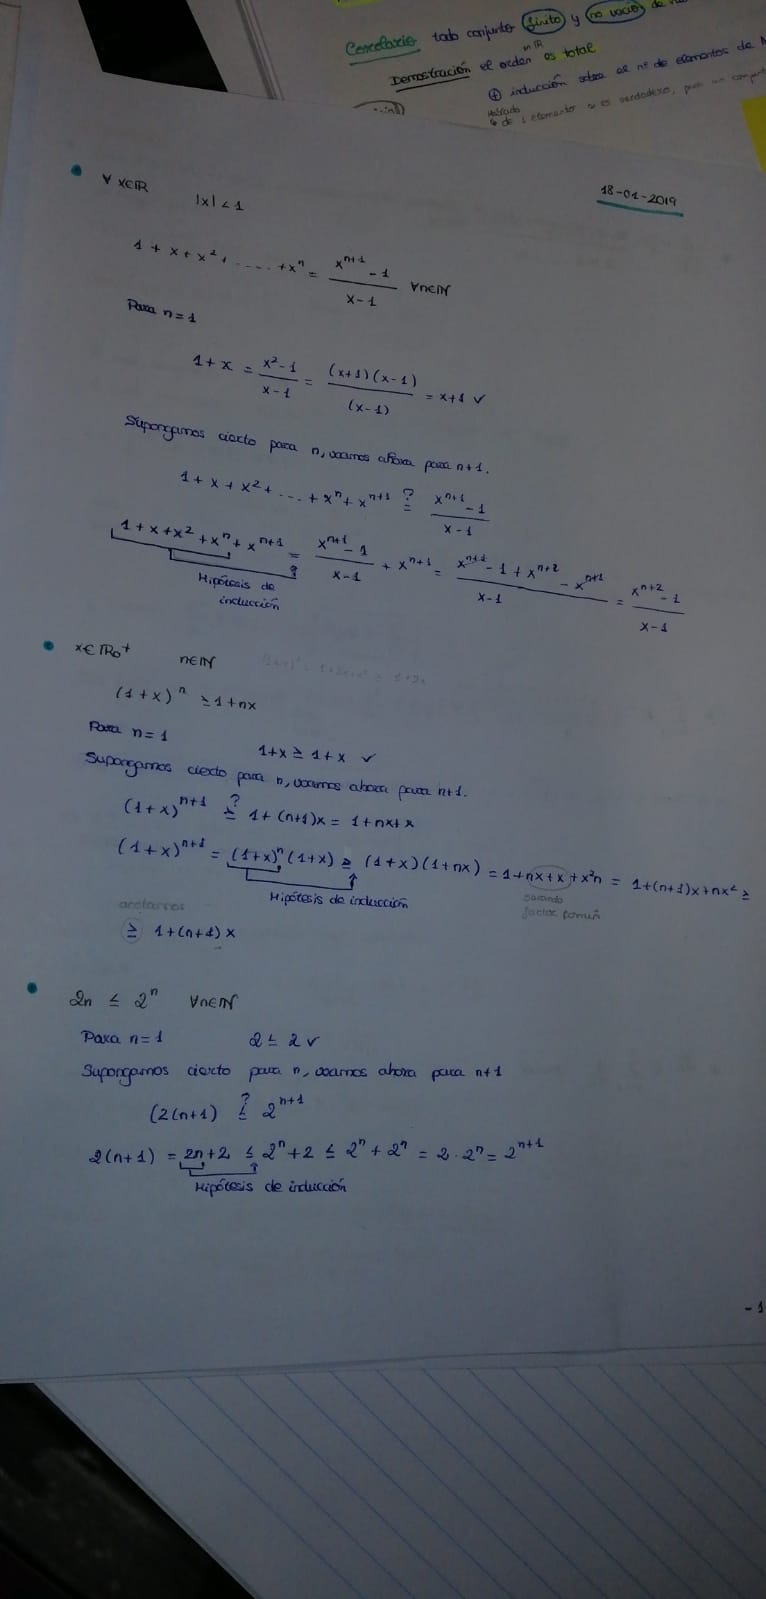 Corolario todo conjunto finito y no vacío de
Demostración el orden en ℝ es total
⊕ inducción sobre el nº de elementos de
de 1 elemento es verdadero, para un
18-01-2019
∀ x∈ℝ |x| < 1
1 + x + x² + ..... + xⁿ = (xⁿ⁺¹ - 1)/(x - 1) ∀n∈ℕ
Para n = 1
1 + x = (x² - 1)/(x - 1) = ((x+1)(x-1))/((x-1)) = x+1 ✓
Supongamos cierto para n, veamos ahora para n+1.
1 + x + x² + ... + xⁿ + xⁿ⁺¹ ≟ (xⁿ⁺¹ - 1)/(x - 1)
1 + x + x² + xⁿ + xⁿ⁺¹ = (xⁿ⁺¹ - 1)/(x - 1) + xⁿ⁺¹ = (xⁿ⁺¹ - 1 + xⁿ⁺² - xⁿ⁺¹)/(x - 1) = (xⁿ⁺² - 1)/(x - 1)
Hipótesis de
inducción
x∈ℝ₀⁺ n∈ℕ
(1+x)ⁿ ≥ 1+nx
Para n = 1 1+x ≥ 1+x ✓
Supongamos cierto para n, veamos ahora para n+1.
(1+x)ⁿ⁺¹ ≥? 1+(n+1)x = 1+nx+x
(1+x)ⁿ⁺¹ = (1+x)ⁿ(1+x) ≥ (1+x)(1+nx) = 1+nx+x+x²n = 1+(n+1)x+nx² ≥
Hipótesis de inducción
sacando
factor común
acotamos
≥ 1+(n+1)x
2n ≤ 2ⁿ ∀n∈ℕ
Para n = 1 2 ≤ 2 ✓
Supongamos cierto para n, veamos ahora para n+1
(2(n+1) ≤? 2ⁿ⁺¹
2(n+1) = 2n+2 ≤ 2ⁿ+2 ≤ 2ⁿ+2ⁿ = 2·2ⁿ = 2ⁿ⁺¹
Hipótesis de inducción